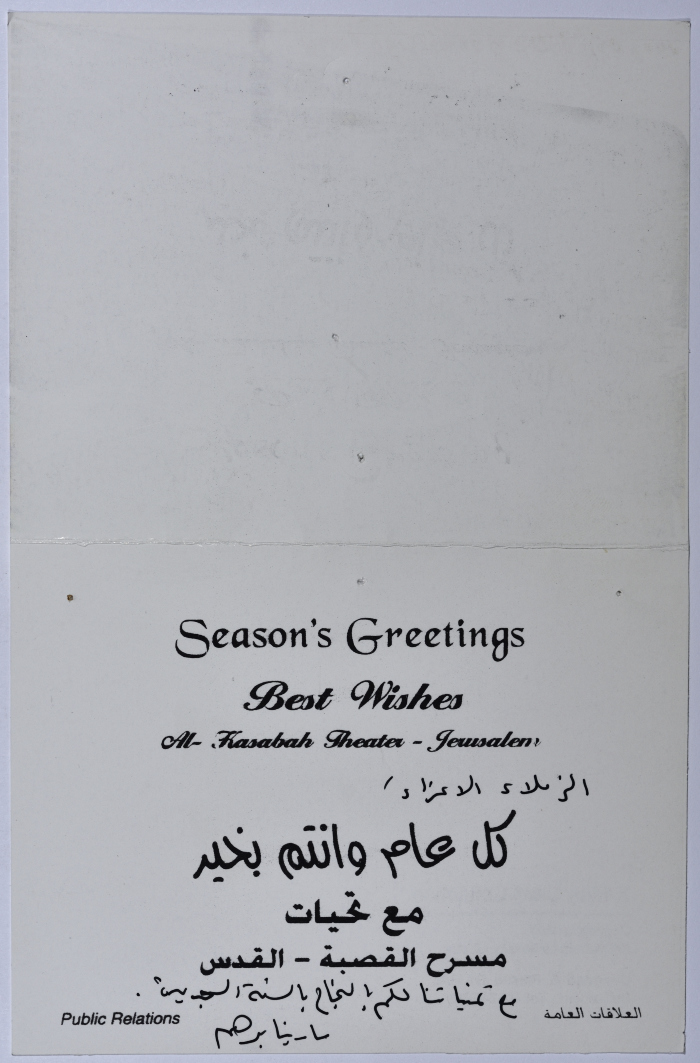 Season's Greetings
Best Wishes
Al- Kasabah Theater - Jerusalem
الزملاء الاعزاء /
كل عام وانتم بخير
مع تحيات
مسرح القصبة - القدس
مع تمنياتنا لكم بالنجاح بالسنة الجديدة .
Public Relations
العلاقات العامة